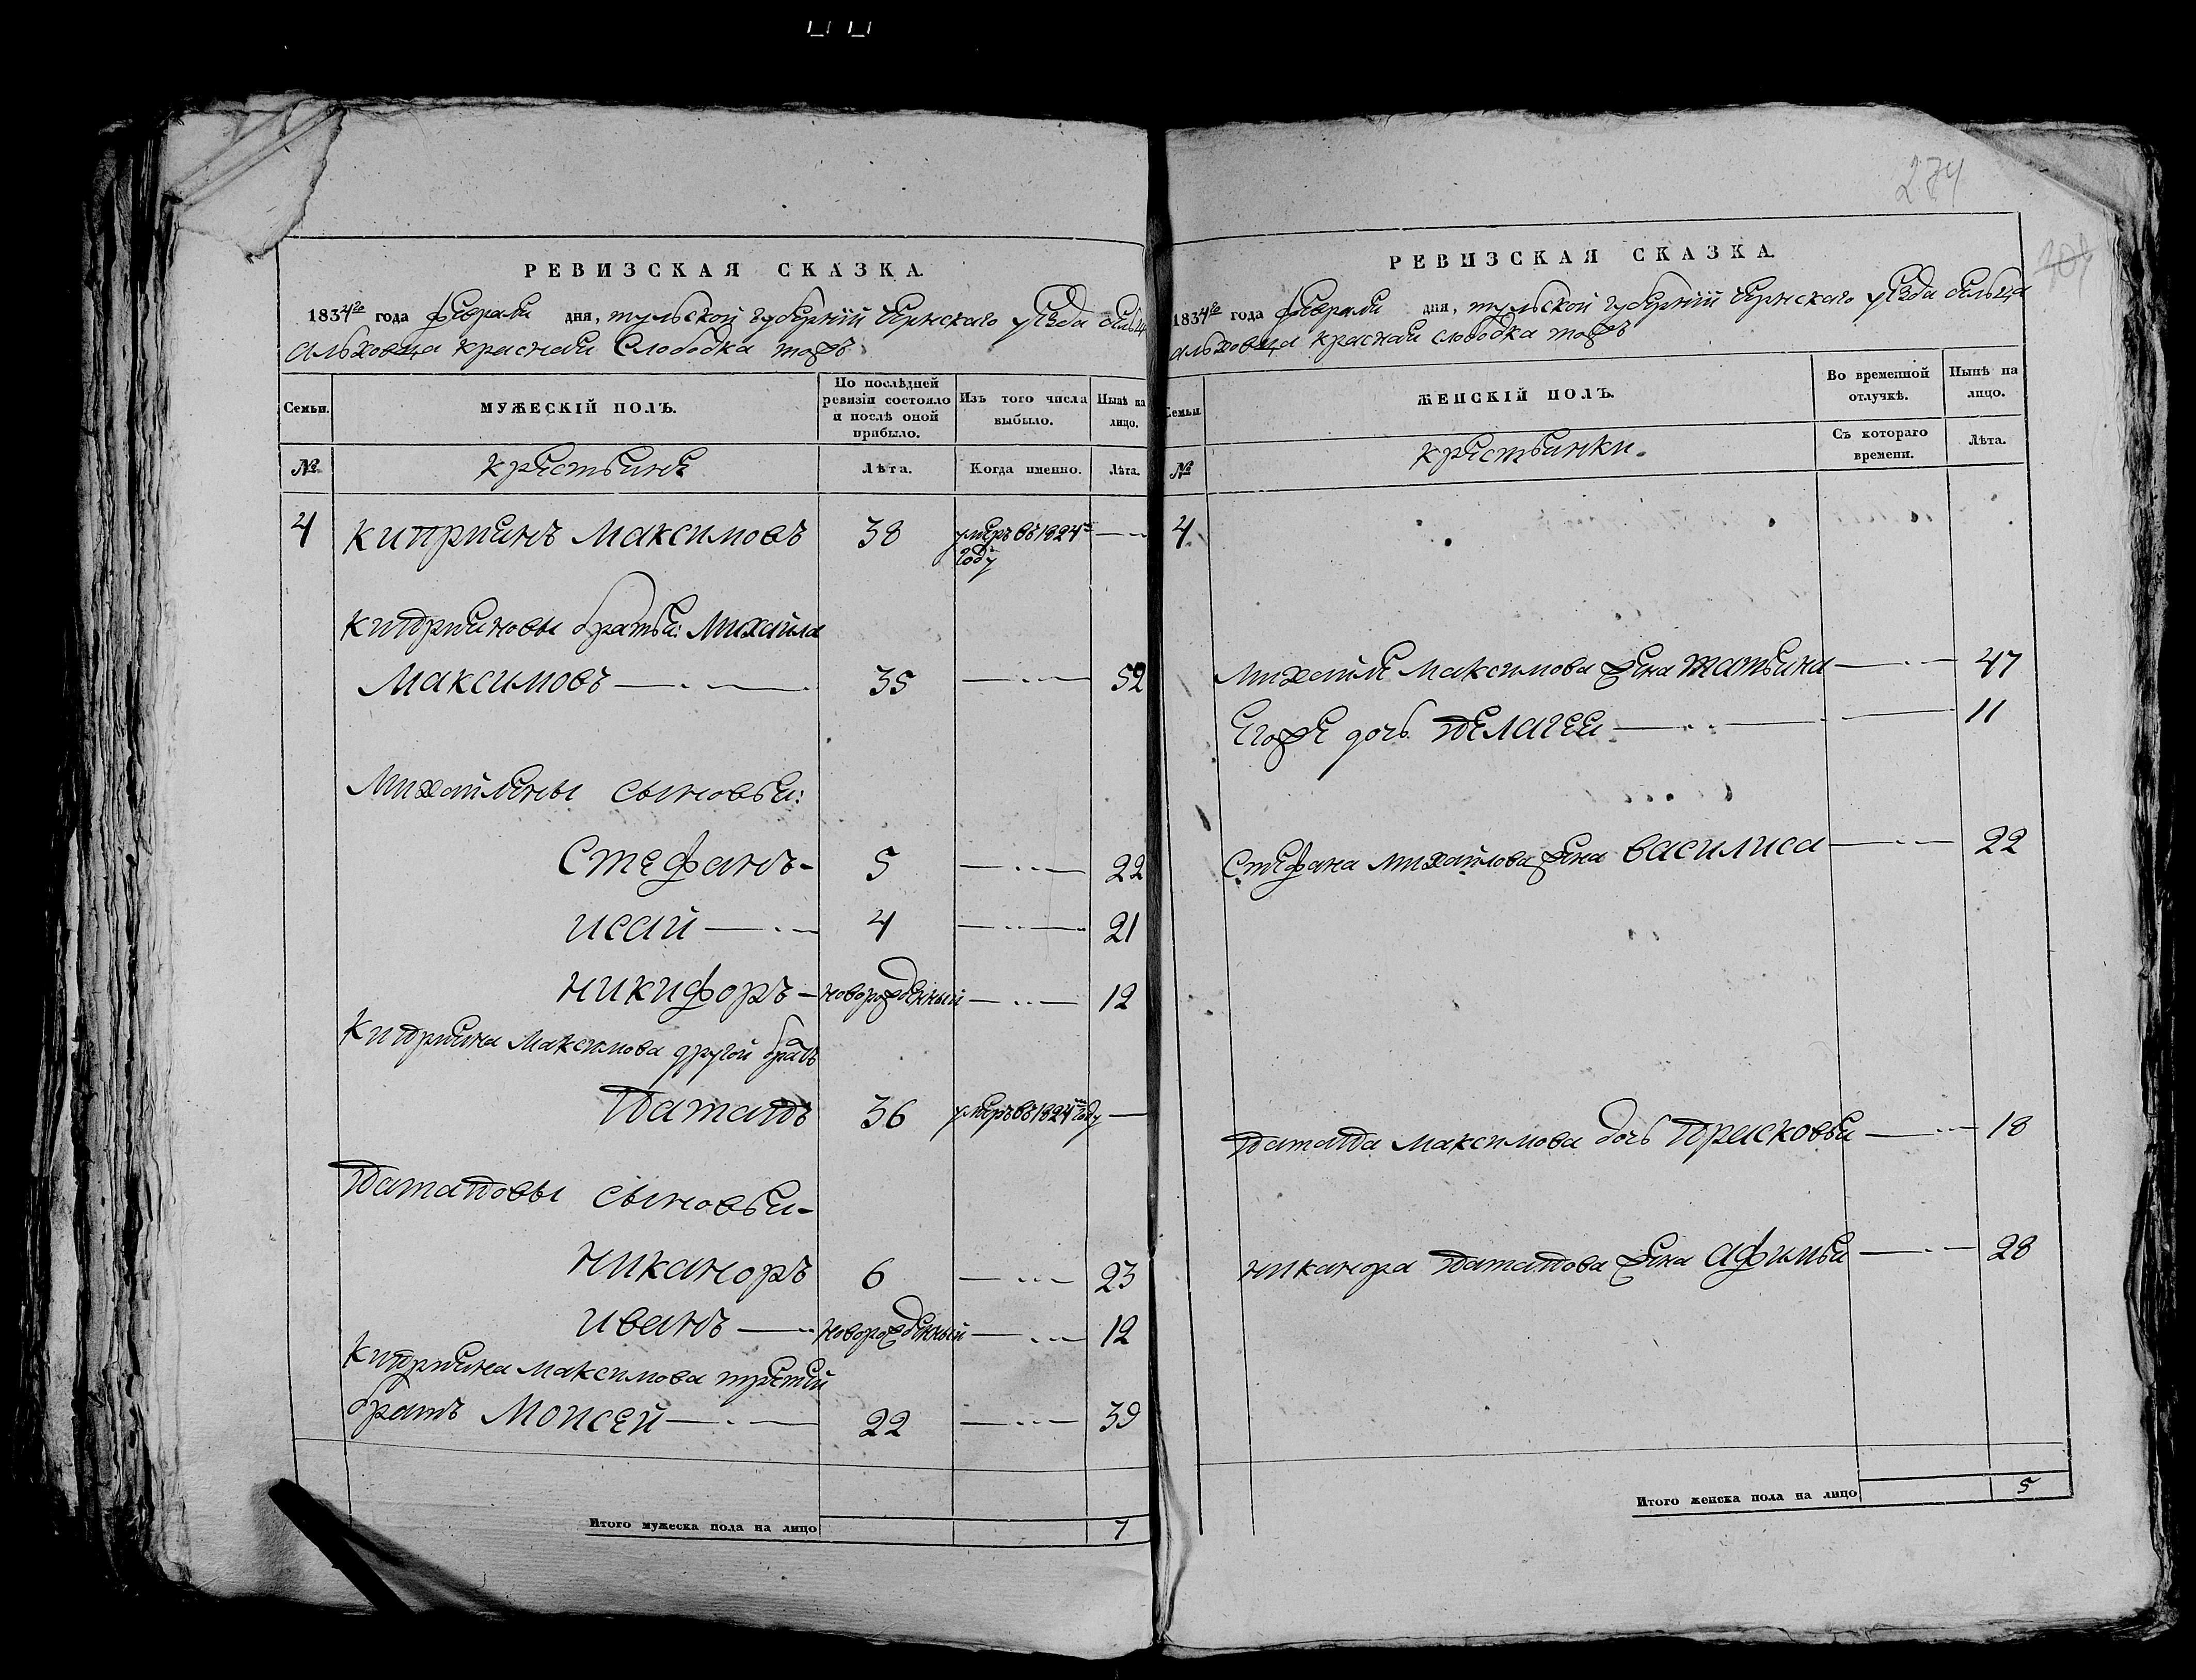 274
РЕВИЗСКАЯ СКАЗКА.
1834го года февраля дня, тульской губернїи Чернскаго уѣзда сельца
Альховца красная Слободка тожъ
Семьи. МУЖЕСКІЙ ПОЛЪ. По послѣдней ревизіи состояло и послѣ оной прибыло. Изъ того числа выбыло. Нынѣ на лицо.
№ крестьяне Лѣта. Когда именно. Лѣта.
4 киприянъ Максимовъ 38 умеръ въ 1824м году
киприяновы братья: Михайла
Максимовъ 35 52
Михайлены сыновья:
Стефанъ 5 22
исай 4 21
никифоръ новорожденный 12
киприяна Максимова другой братъ
Патапъ 36 умеръ въ 1824м году
Патаповы сыновья
Никаноръ 6 23
иванъ новорожденный 12
киприяна Максимова третий
братъ Моисей 22 39
Итого мужеска пола на лицо 7
РЕВИЗСКАЯ СКАЗКА.
1834го года февраля дня, тульской губернїи Чернскаго уѣзда сельца
альховца красная слободка тожъ
Семьи. ЖЕНСКІЙ ПОЛЪ. Во временной отлучкѣ. Нынѣ на лицо.
№ крестьянки. Съ котораго времени. Лѣта.
4.
Михайлы Максимова жена татьяна 47
Егоже дочь пелагея 11
Стефана михайлова жена василиса 22
патапа максимова дочь Прасковья 18
никанора патапова жена Афимья 28
Итого женска пола на лицо 5